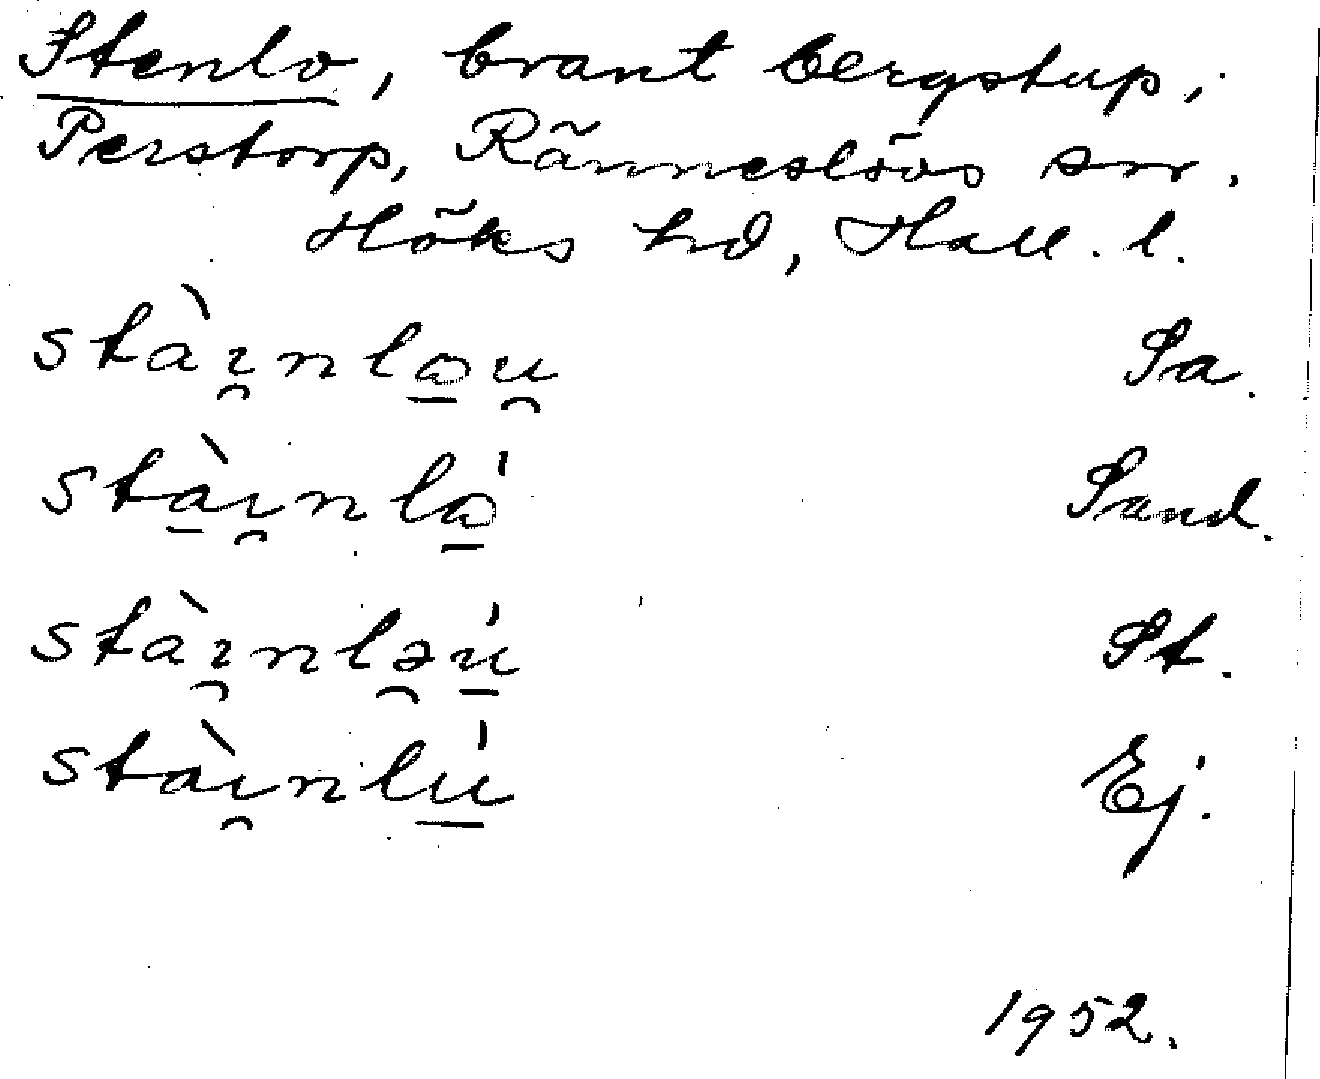 Stenlo, brant bergstup,
Perstorp, Ränneslövs sn.
Höks hd, Hall. l.
stàı̯nlo̲u̯ Sa.
stà̲ı̯nló̲ Sand.
stàı̯nlə̯ú̲ St.
stàı̯nlú̲ Ej.
1952.